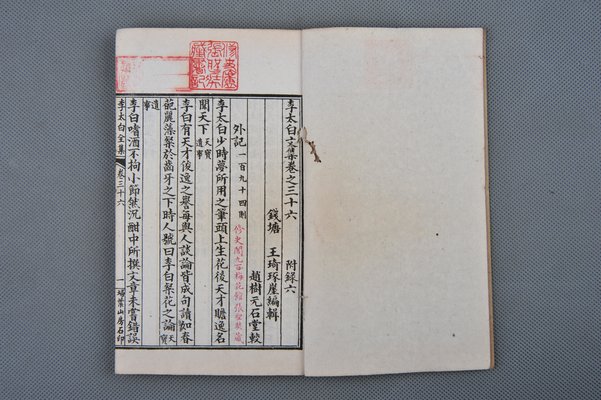 李太白文集卷之三十六 附錄六
錢塘 王琦琢崖編輯
趙樹元石堂較
外記 一百九十四則
李太白少時夢所用之筆頭上生花後天才贍逸名
聞天下 天寶遺事
李白有天才俊逸之譽每與人談論皆成句讀如春
葩麗藻粲於齒牙之下時人號曰李白粲花之論 天寶
遺事
李白嗜酒不拘小節然沉酣中所撰文章未嘗錯誤
李太白全集 卷三十六 一 埽葉山房石印